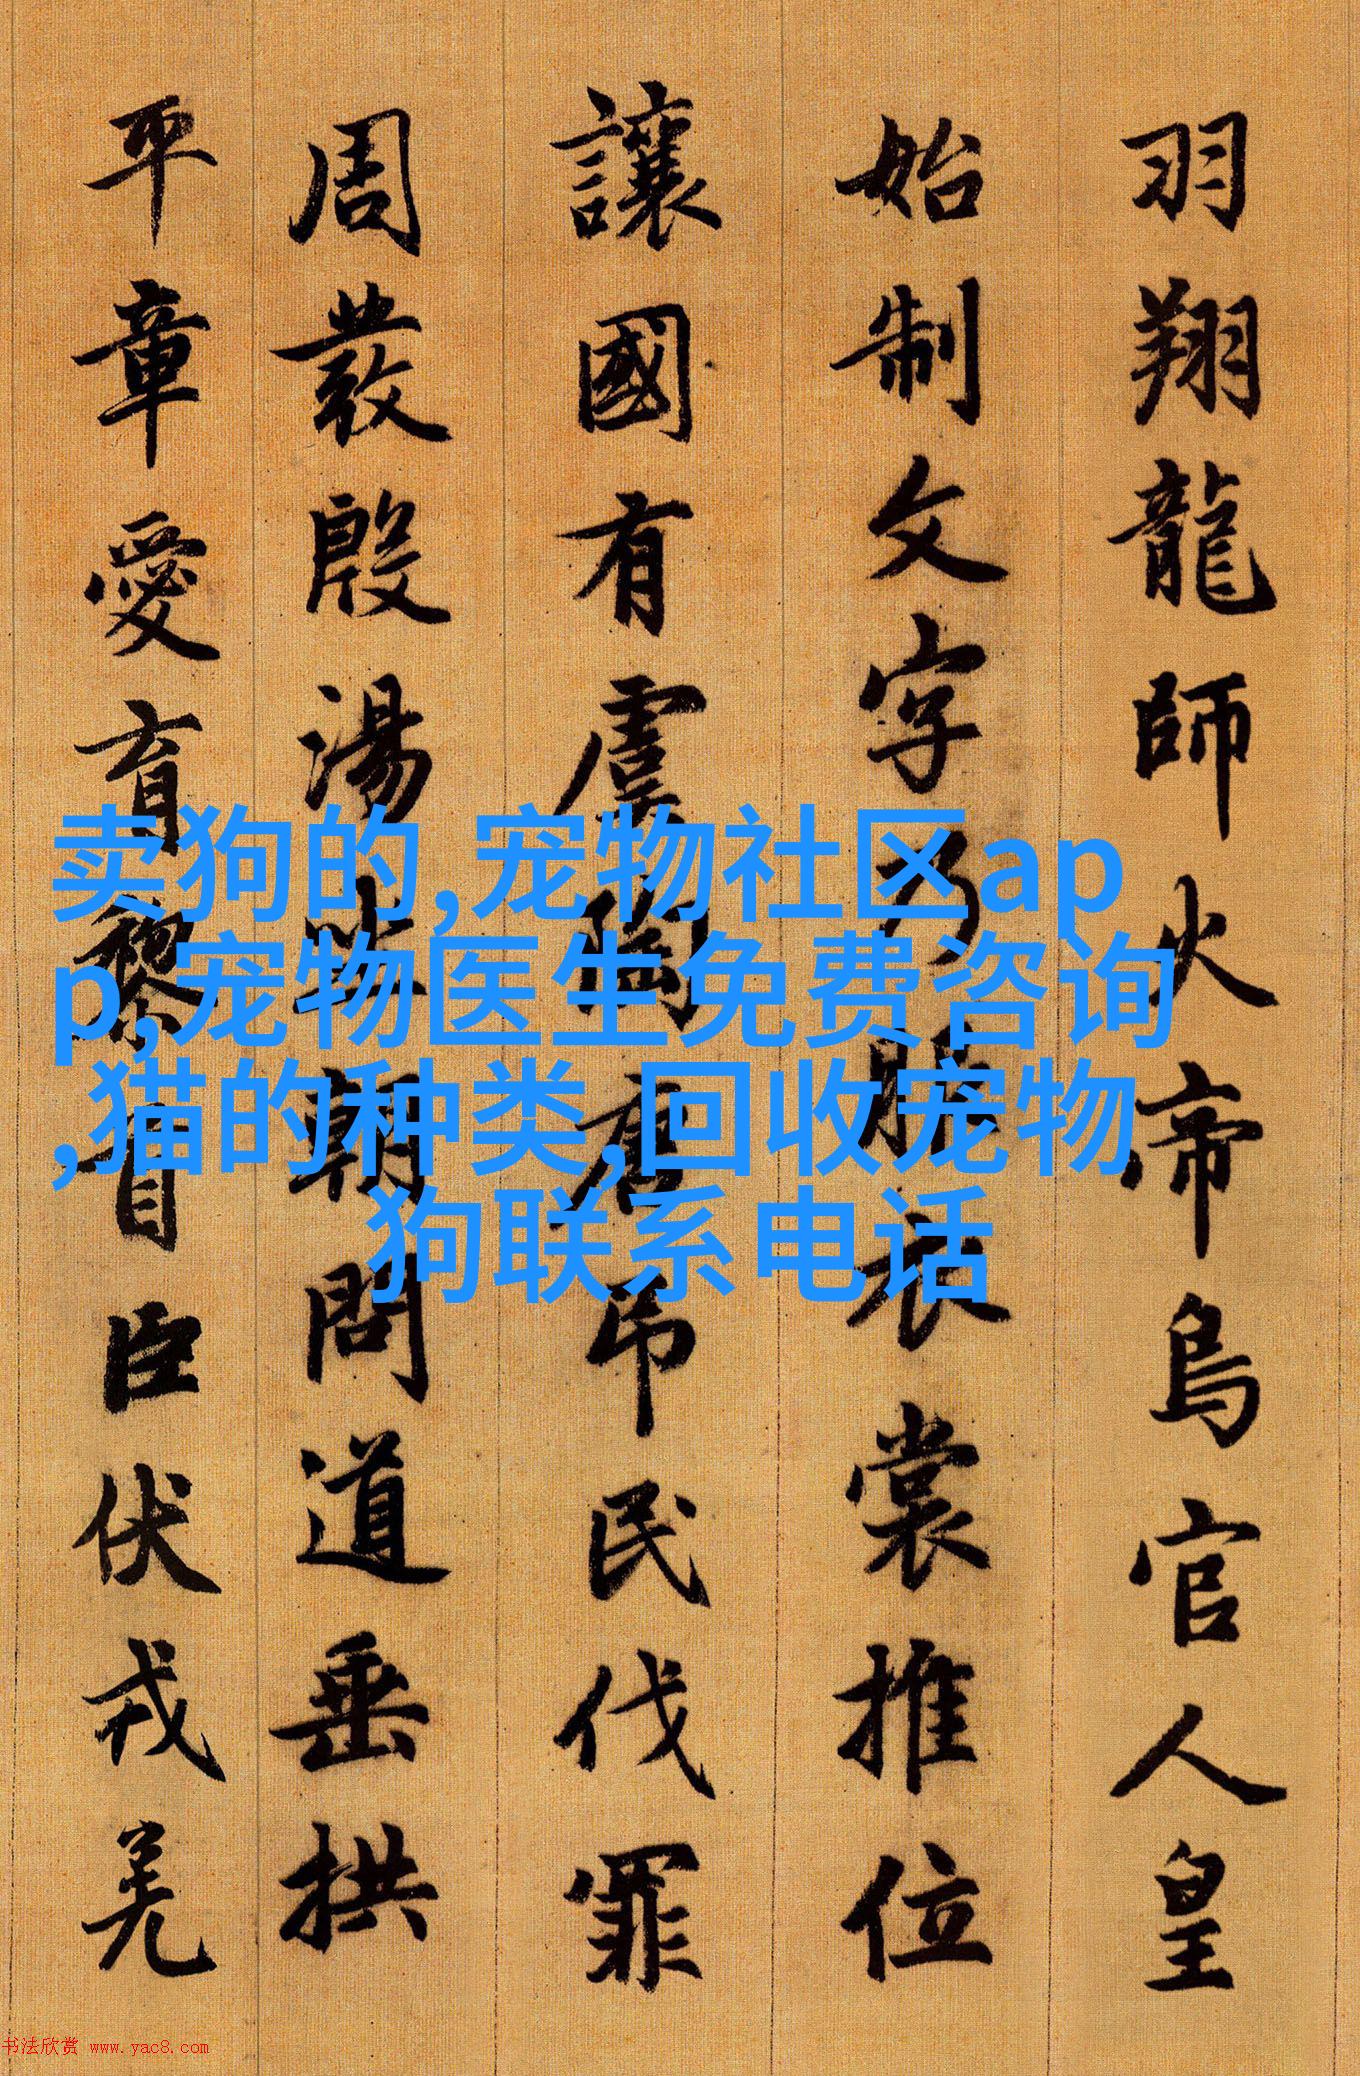 羽翔龍師火帝鳥官人皇
始制文字乃服衣裳推位
讓國有虞陶唐吊民伐罪
周發殷湯坐朝問道垂拱
平章愛育黎首臣伏戎羌
卖狗的,宠物社区ap
p,宠物医生免费咨询
,猫的种类,回收宠物
狗联系电话
书法欣赏 www.yac8.com